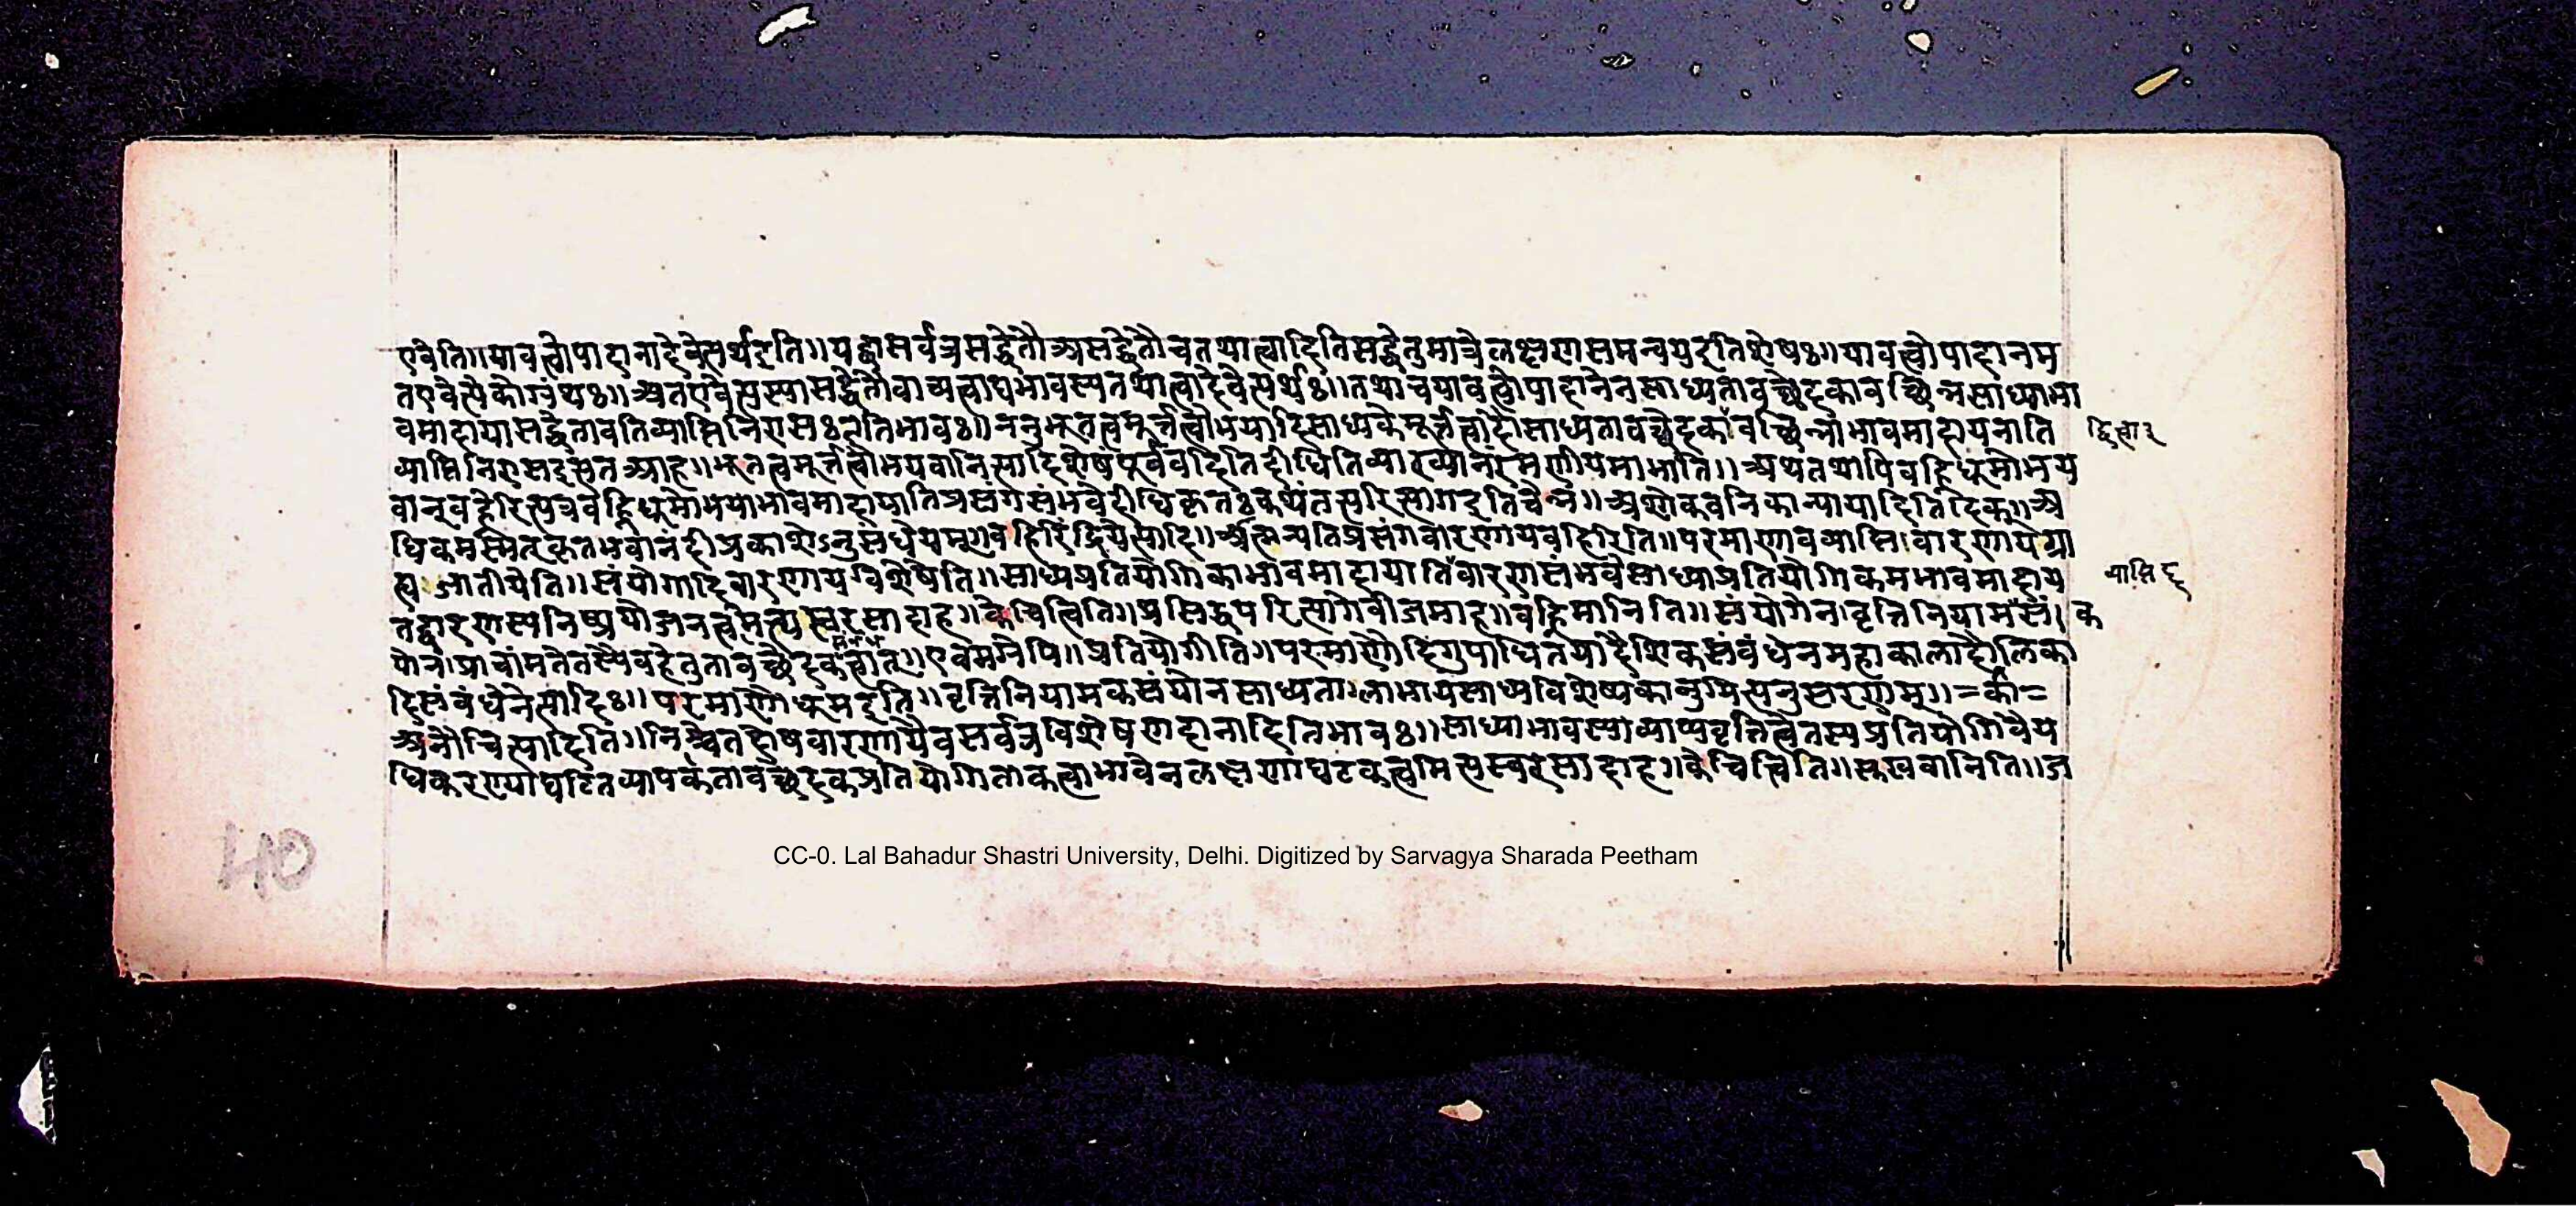 एवेति॥यावत्वोपादानादेवेत्यर्थइति॥यद्वासर्वत्रसद्धेतौअसद्धेतौचतथात्वादितिसद्धेतुमात्रेलक्षणसमन्वयइतिशेषः॥यावत्वोपादानम
तएवेत्येकोग्रंथः॥अतएवेत्यस्यासद्धेतौवाच्यत्वाद्यभावस्यतथात्वादेवेत्यर्थः॥तथाचयावत्वोपादानेनसाध्यतावच्छेदकावच्छिन्नसाध्याभा
वमादायासद्धेतावतिव्याप्तिनिरासःइतिभावः॥ननुभूतत्वमूर्त्तत्वोभयादिसाध्यकेमूर्त्तत्वादौसाध्यतावच्छेदकावच्छिन्नाभावमादायनाति
व्याप्तिनिरासइत्यतआह॥भूतत्वमूर्त्तत्वोभयवानित्यादिशेषंपूर्ववदितिदीधितिव्याख्यानंरमणीयमाभाति॥अथतथापिवह्निधूमोभय
वान्वह्नेरित्यत्रवह्निधूमोभयाभावमादायातिप्रसंगसंभवेदीधिकृतःकथंतत्परित्यागइतिचेन्न॥अशोकवनिकान्यायादितिदिक्॥अ
धिकमस्मित्कृतभवानंदीप्रकाशेऽनुसंधेयम्॥वहिरिंद्रियेत्यादि॥आत्मन्यतिप्रसंगवारणायवहिरिति॥परमाणावव्याप्तिवारणायग्रा
ह्यजातीयेति॥संयोगादिवारणायविशेषेति॥साध्यप्रतियोगिकाभावमादायातिवारणसंभवेसाध्याप्रतियोगिकमभावमादाय
तद्वारणस्यनिष्प्रयोजनत्वमेत्यस्वरसादाह॥केचित्विति॥प्रसिद्धपरित्यागेवीजमाह॥वह्निमानिति॥संयोगेनवृत्तिनियामसं। क
योनप्राचांमतेतस्यैवहेतुतावच्छेदकत्वात्॥एवमग्रेपि॥प्रतियोगीति॥परमाणौदिगुपाधितयादैशिकसंबंधेनमहाकालादौलिका
दिसंबंधेनेत्यादिः॥परमाणौधूमइति॥वृत्तिनियामकसंयोनसाध्यतालाभायसाध्यविशेष्यकानुमित्यनुसरणम्॥=का=
अनौचित्यादिति॥निश्चैतदोषवारणायैवसर्वत्रविशेषणदानादितिभावः॥साध्याभावस्याव्याप्यवृत्तित्वेतस्यप्रतियोगिवैय
धिकरण्याघटितव्यापकतावच्छेदकप्रतियोगिताकत्वाभावेनलक्षणाघटकत्वमित्यस्वरसादाह॥केचित्विति॥सुखवानिति॥ज
द्वित्वार
व्याप्ति द्
40
CC-0. Lal Bahadur Shastri University, Delhi. Digitized by Sarvagya Sharada Peetham